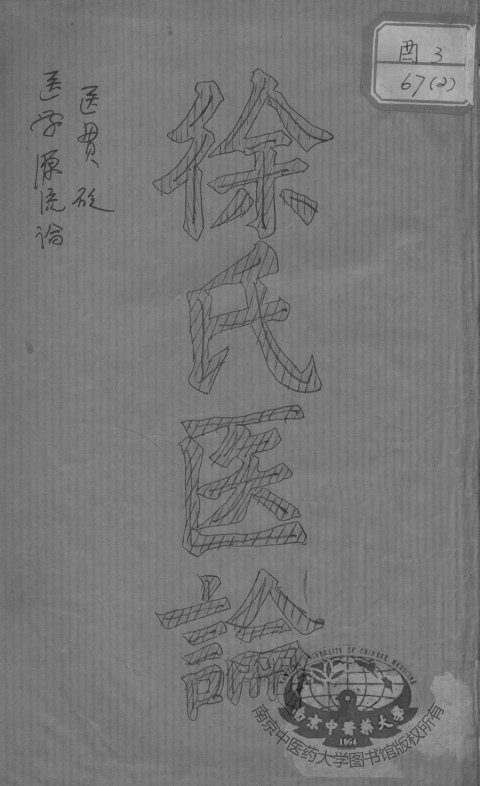 酉3
67(2)
徐氏医論
医贯砭
医学源流论
UNIVERSITY OF CHINESE MEDICINE
南京中醫藥大學
1954
南京中医药大学图书馆版权所有